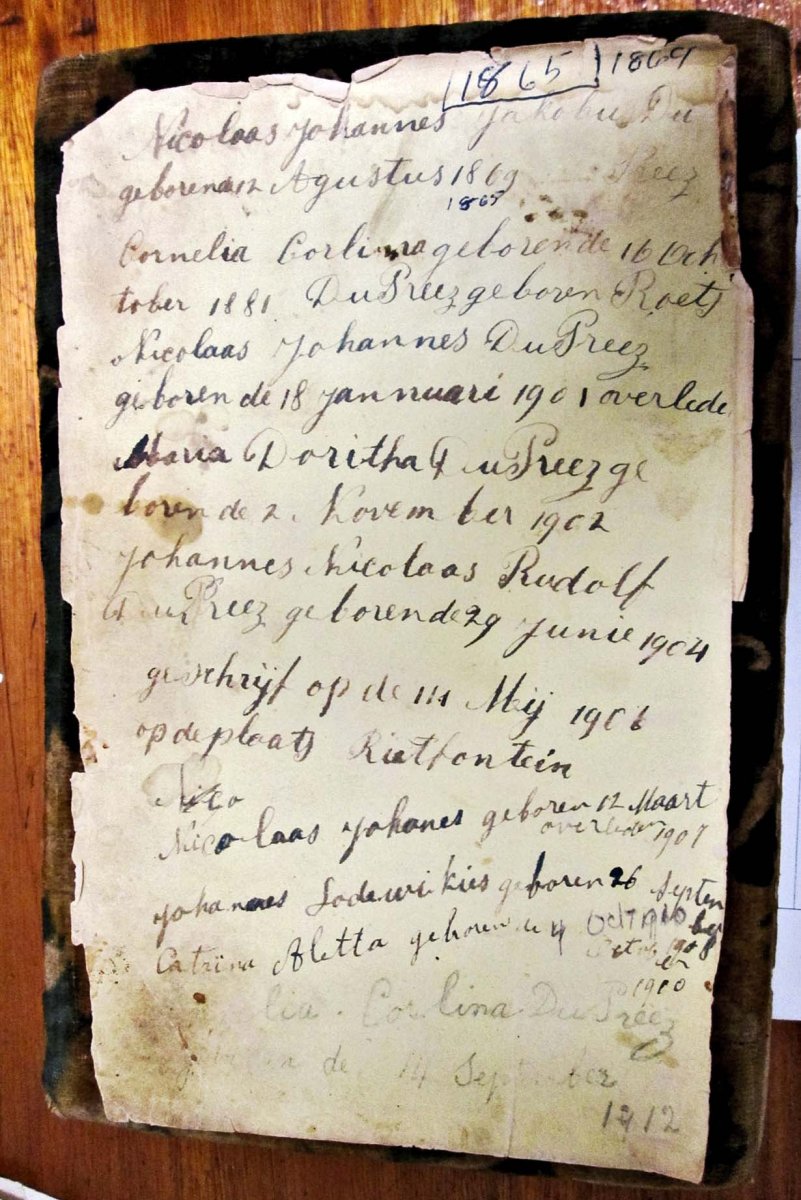 1865 1869
Nicolaas Johannes Jakobu Du
geborende 12 Agustus 1869 Preez
1865
Cornelia Corlina geborende 16 Och
tober 1881 Du Preez geboren Roets
Nicolaas Johannes Du Preez
geboren de 18 Jannuari 1901 overlede
Maria Doritha Du Preez ge
boren de 2. November 1902
Johannes Nicolaas Rudolf
Du Preez geboren de 29 Junie 1904
geschrijf op de 14 Meij 1906
op de plaats Rietfontein
Nico
Nicolaas Johanes geboren 12 Maart
overleden 1907
Johannes Lodewikies geboren 26 Septem
ber 1908
Catrina Aletta geboren de 4 Oct 1910
1910
lia Corlina Du Preez
de 14 September
1912